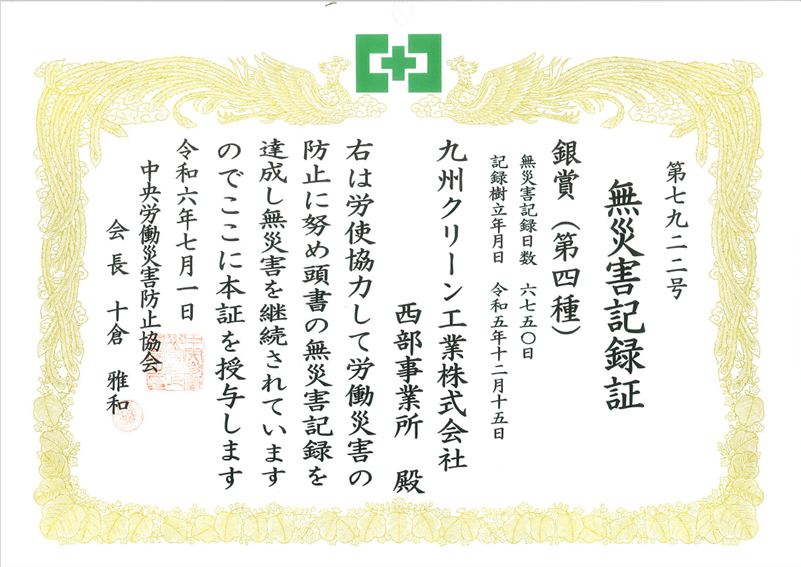 第七九二二号
無災害記録証
銀賞（第四種）
無災害記録日数 六七五〇日
記録樹立年月日 令和五年十二月十五日
九州クリーン工業株式会社
西部事業所 殿
右は労使協力して労働災害の
防止に努め頭書の無災害記録を
達成し無災害を継続されています
のでここに本証を授与します
令和六年七月一日
中央労働災害防止協会
会長 十倉 雅和